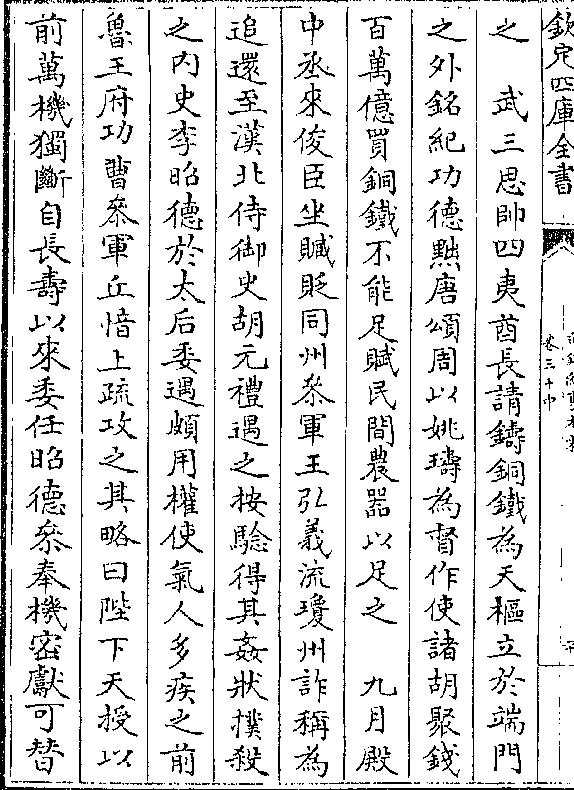 欽定四庫全書
卷三十中
之　武三思帥四夷酋長請鑄銅鐵為天樞立於端門
之外銘紀功德黜唐頌周以姚璹為督作使諸胡聚錢
百萬億買銅鐵不能足賦民間農器以足之　九月殿
中丞來俊臣坐贓貶同州叅軍王弘義流瓊州詐稱為
追還至漢北侍御史胡元禮遇之按驗得其姦狀撲殺
之内史李昭德於太后委遇頗用權使氣人多疾之前
魯王府功曹叅軍丘愔上疏攻之其略曰陛下天授以
前萬機獨斷自長壽以來委任昭德叅奉機密獻可替